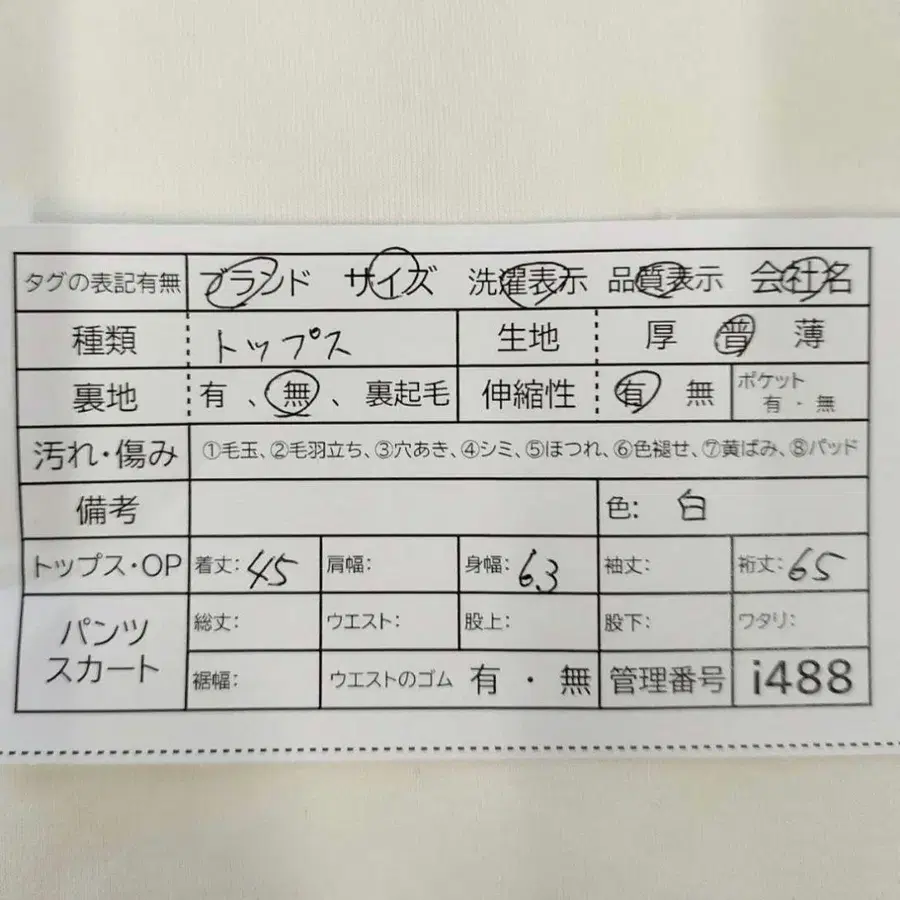 タグの表記有無 ブランド サイズ 洗濯表示 品質表示 会社名
種類 トップス 生地 厚 普 薄
裏地 有、無、裏起毛 伸縮性 有 無 ポケット 有・無
汚れ・傷み ①毛玉、②毛羽立ち、③穴あき、④シミ、⑤ほつれ、⑥色褪せ、⑦黄ばみ、⑧パッド
備考 色: 白
トップス・OP 着丈: 45 肩幅: 身幅: 63 袖丈: 裄丈: 65
パンツ スカート 総丈: ウエスト: 股上: 股下: ワタリ:
裾幅: ウエストのゴム 有・無 管理番号 i488